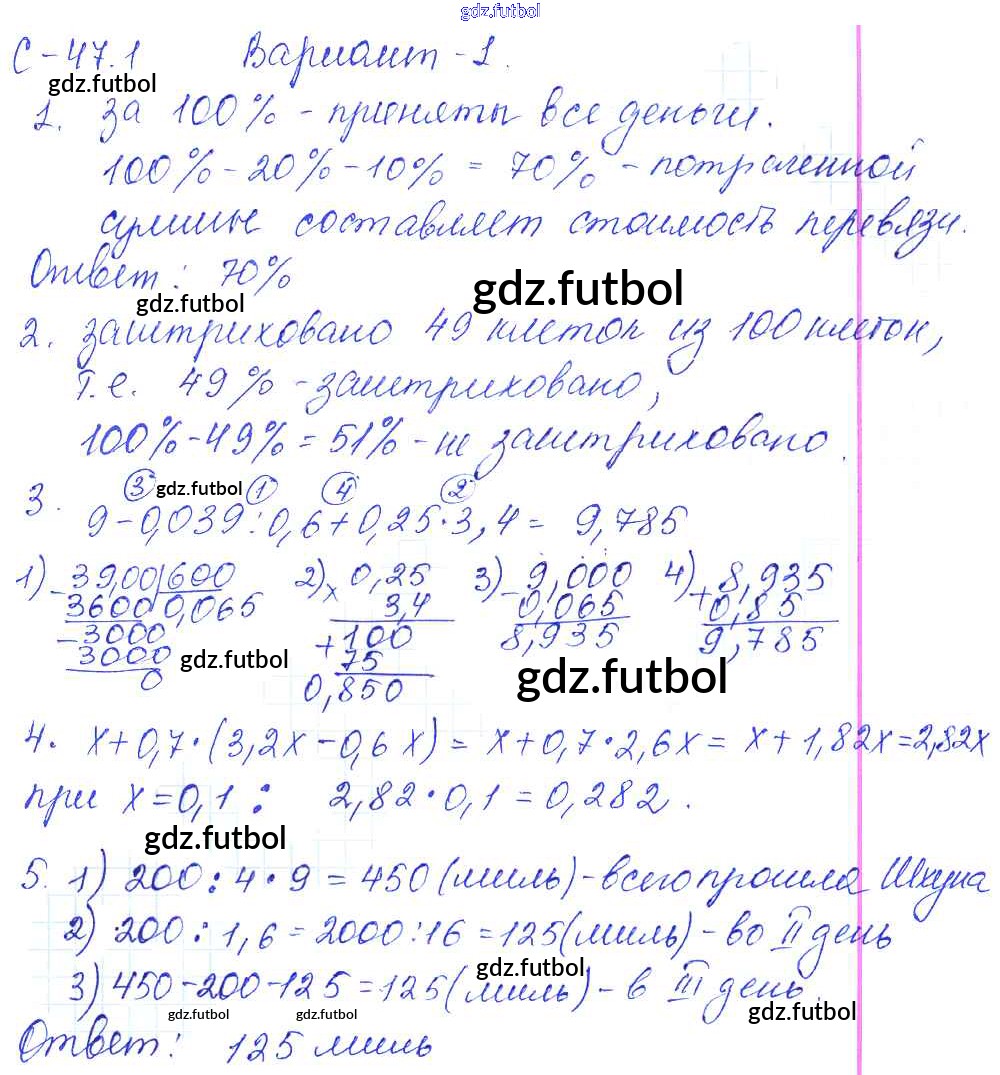 gdz.futbol
С-47.1 Вариант-1.
gdz.futbol
1. за 100% - приняты все деньги.
100% - 20% - 10% = 70% - потраченной
суммы составляет стоимость перевязи.
Ответ: 70%
gdz.futbol gdz.futbol
2. заштриховано 49 клеток из 100 клеток,
т.е. 49% - заштриховано,
100% - 49% = 51% - не заштриховано.
3. ③ gdz.futbol ① ④ ②
9 - 0,039 : 0,6 + 0,25 · 3,4 = 9,785
1) - 39,00 | 600 2) x 0,25 3) - 9,000 4) + 8,935
3600 0,065 3,4 0,065 0,85
- 3000 + 100 8,935 9,785
3000 gdz.futbol 75 gdz.futbol
0 0,850
4. x + 0,7 · (3,2x - 0,6x) = x + 0,7 · 2,6x = x + 1,82x = 2,82x
при x = 0,1 : 2,82 · 0,1 = 0,282.
gdz.futbol
5. 1) 200 : 4 · 9 = 450 (миль) - всего прошла Шхуна
2) 200 : 1,6 = 2000 : 16 = 125 (миль) - во II день
gdz.futbol
3) 450 - 200 - 125 = 125 (миль) - в III день.
gdz.futbol gdz.futbol gdz.futbol
Ответ: 125 миль